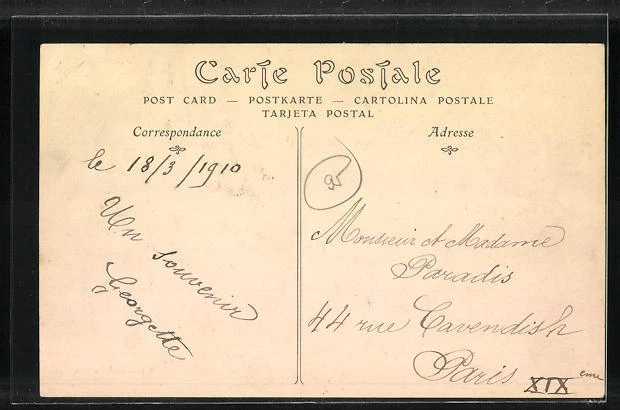 Carte Postale
POST CARD — POSTKARTE — CARTOLINA POSTALE
TARJETA POSTAL
Correspondance
le 18/3/1910
Un souvenir
Georgette
Adresse
95
Monsieur et Madame
Paradis
44 rue Cavendish
Paris XIXeme